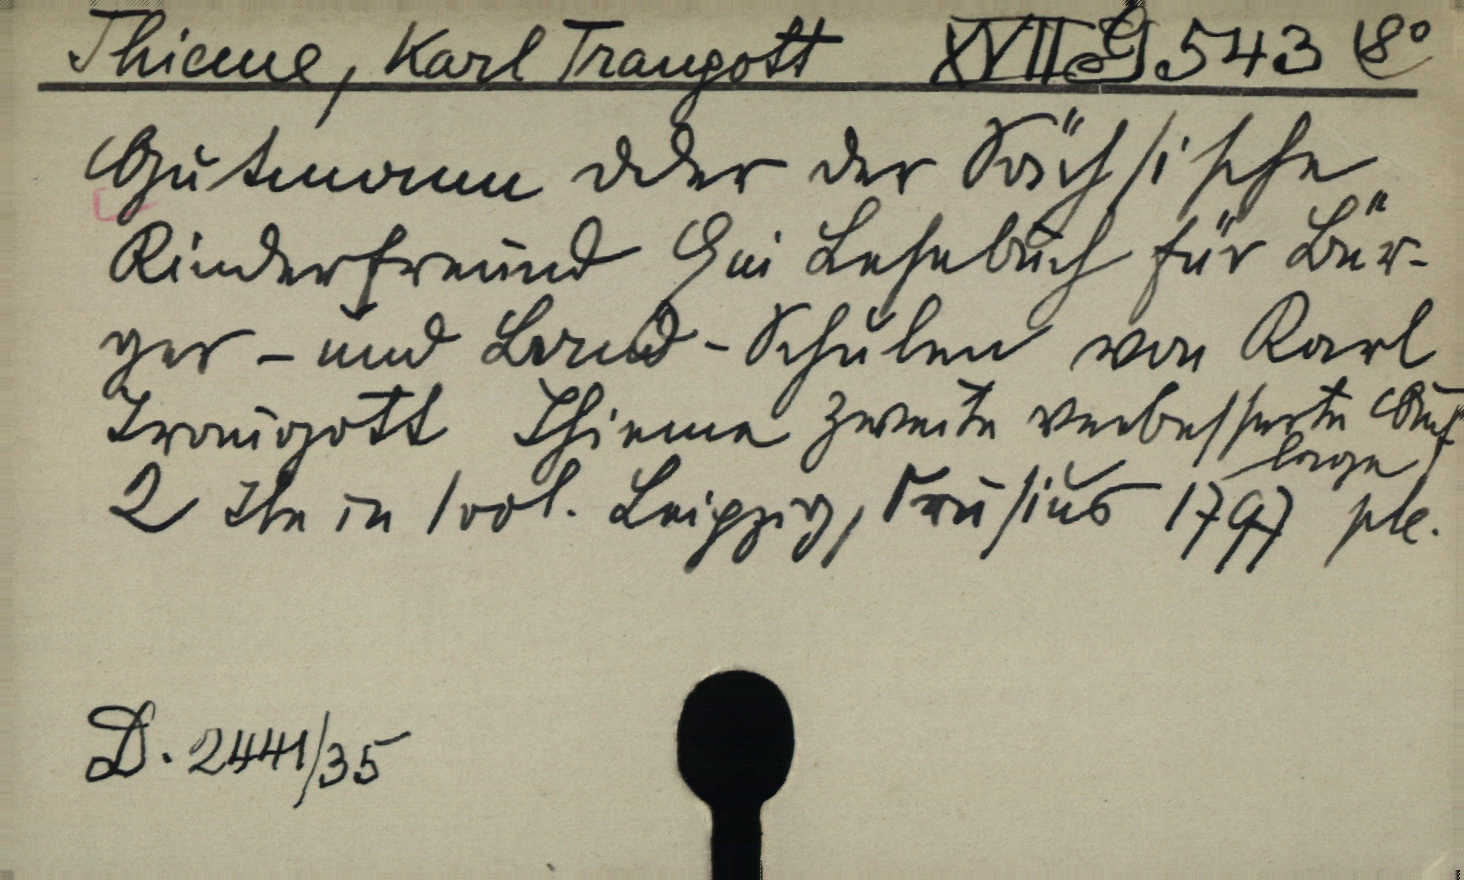 Thieme, Karl Traugott XVII G 543 8°
Gutmann oder der Sächsische
Kinderfreund Ein Lesebuch für Bür-
ger- und Land-Schulen von Karl
Traugott Thieme zweite verbesserte Auf
lage
2 Tle in 1 vol. Leipzig, Crusius 1797
D. 2441/35